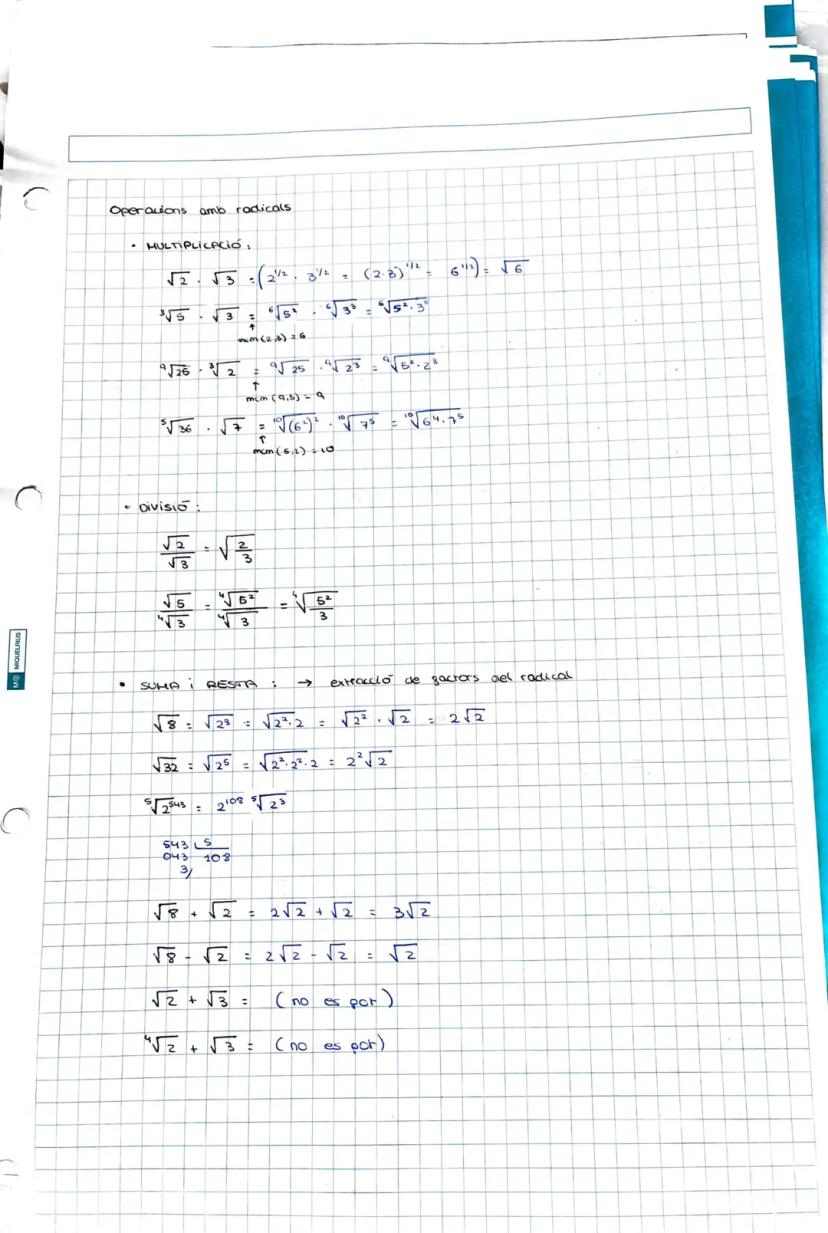 Operacions amb radicals
• MULTIPLICACIÓ:
√2 · √3 = (2^1/2 · 3^1/2 = (2·3)^1/2 = 6^1/2) = √6
³√5 · √3 = ⁶√5² · ⁶√3³ = ⁶√5²·3³
↑
mcm(2,3) = 6
⁹√25 · ³√2 = ⁹√25 · ⁹√2³ = ⁹√5²·2³
↑
mcm(9,3) = 9
⁵√36 · √7 = ¹⁰√(6²)² · ¹⁰√7⁵ = ¹⁰√6⁴·7⁵
↑
mcm(5,2) = 10
• DIVISIÓ:
√2/√3 = √2/3
√5/⁴√3 = ⁴√5²/⁴√3 = ⁴√5²/3
• SUMA i RESTA: → extracció de factors del radical
√8 = √2³ = √2²·2 = √2² · √2 = 2√2
√32 = √2⁵ = √2²·2²·2 = 2²√2
⁵√2⁵⁴³ = 2¹⁰⁸ ⁵√2³
543 5
043 108
3/
√8 + √2 = 2√2 + √2 = 3√2
√8 - √2 = 2√2 - √2 = √2
√2 + √3 = (no es pot)
⁴√2 + √3 = (no es pot)
MIQUELRIUS